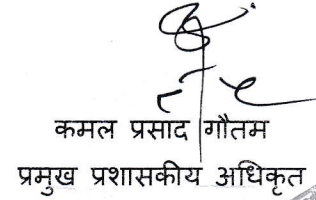 कमल प्रसाद गौतम
प्रमुख प्रशासकीय अधिकृत